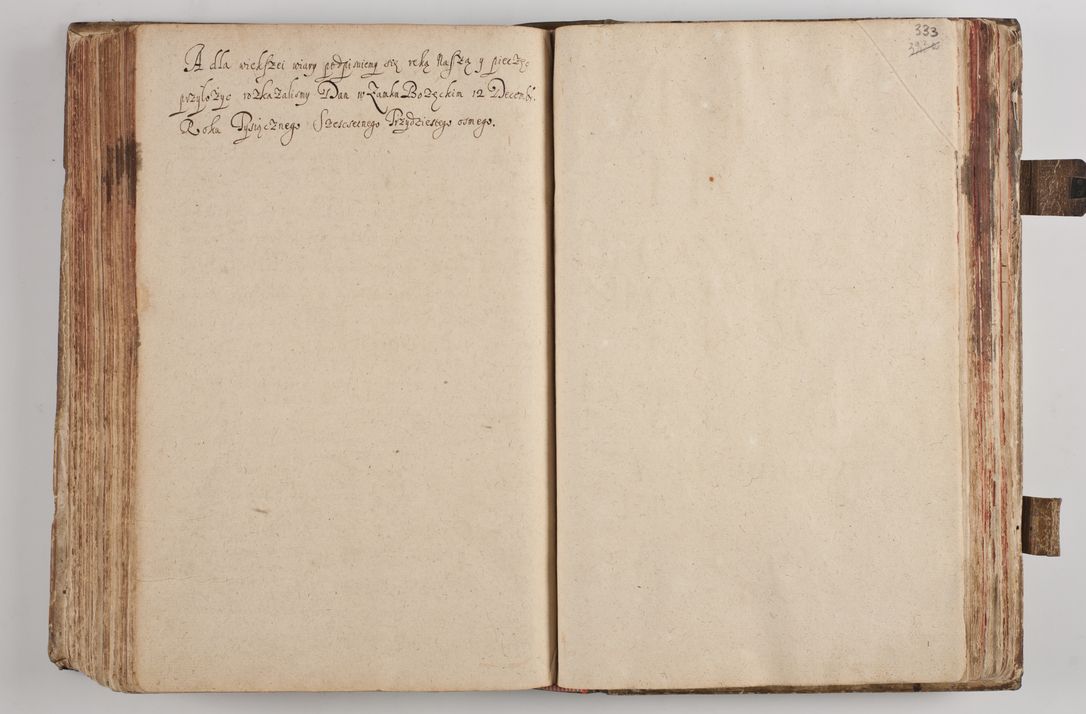 A dla większei wiary podpisuiemy się ręką naszą y pieczęć
przyłozyc rozkazalismy Dan w Zamku Bodzęckim 12 Decemb.
Roku Tysiącznego Szescsetnego Trzydziestego osmego.
333